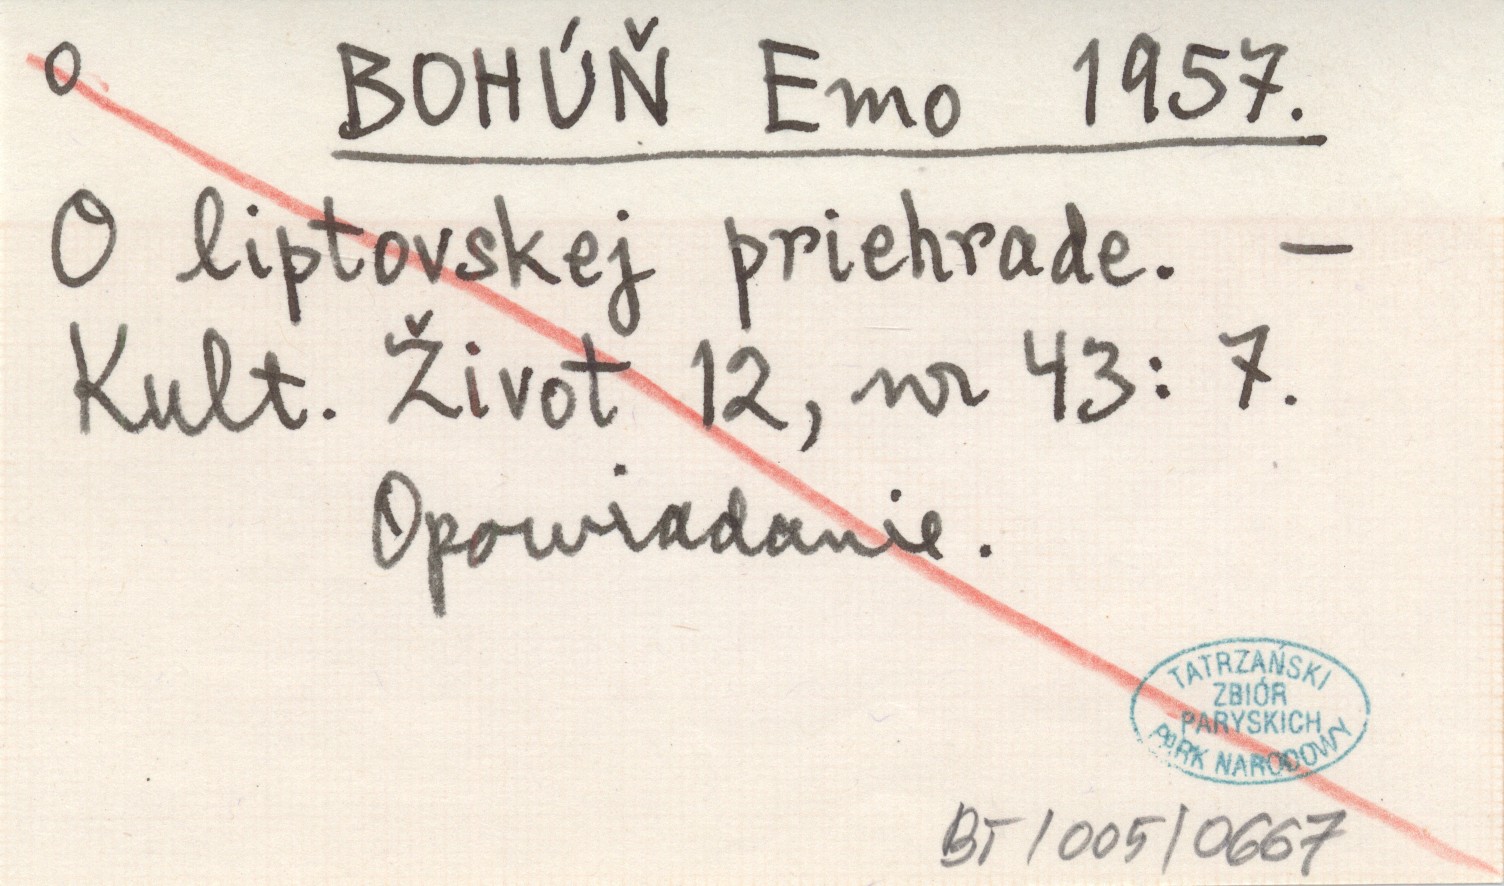 o BOHÚŇ Emo 1957.
O liptovskej priehrade. —
Kult. Život 12, nr 43: 7.
Opowiadanie.
TATRZAŃSKI
ZBIÓR
PARYSKICH
PARK NARODOWY
BT/005/0667